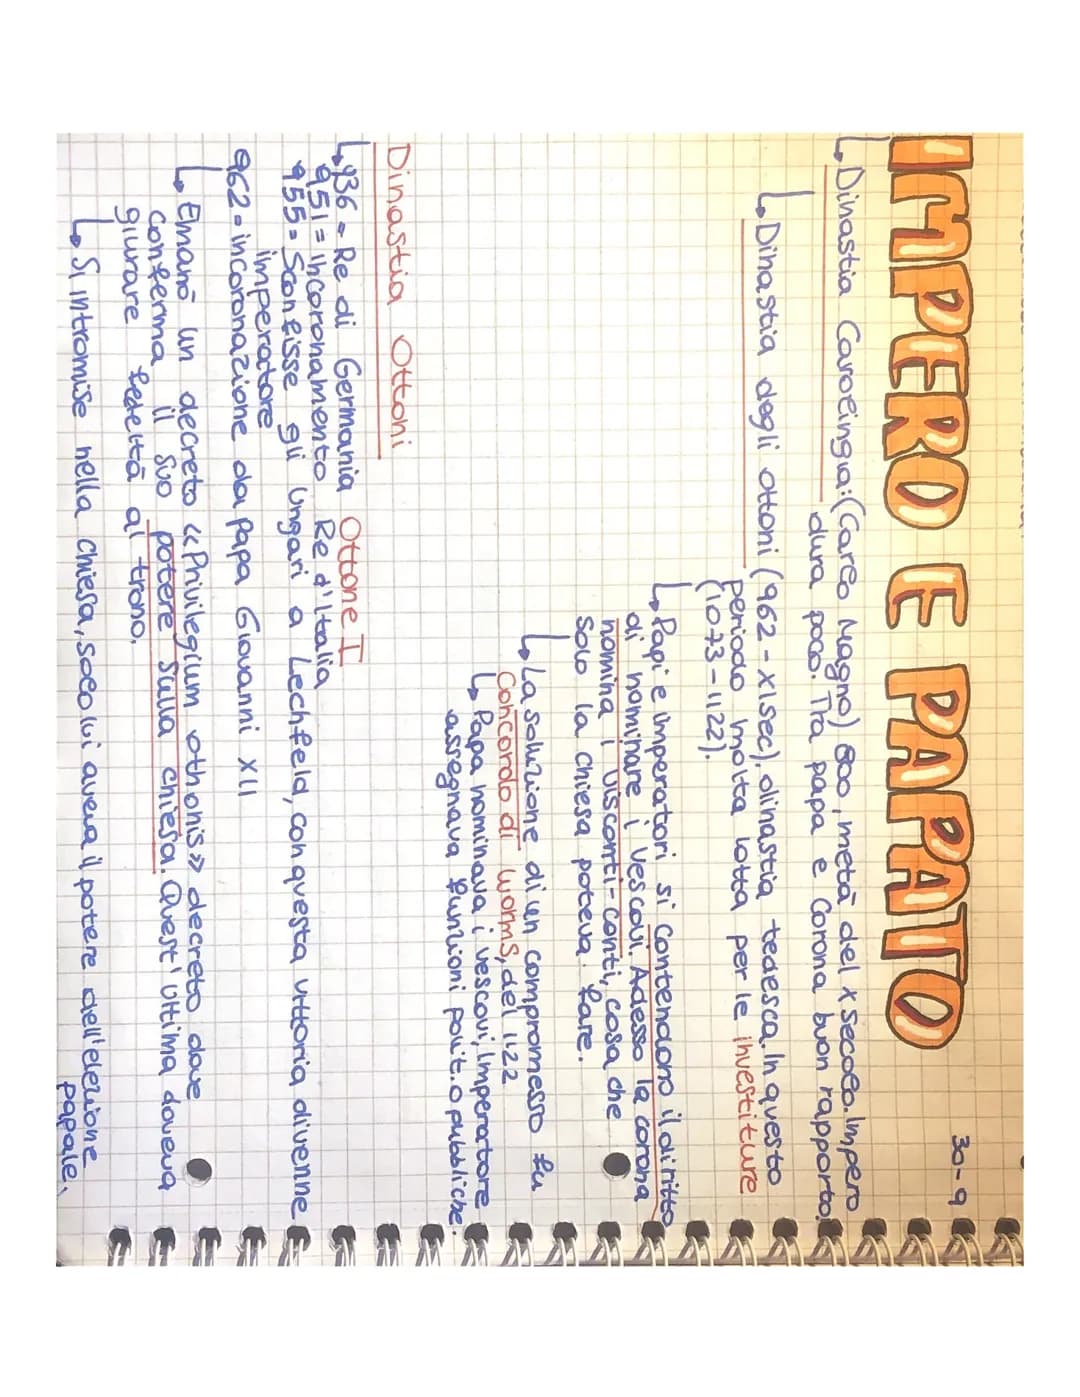 30-9
IMPERO E PAPATO
↳ Dinastia Carolingia: (Carlo Magno) 800, metà del X secolo. Impero
dura poco. Tra papa e Corona buon rapporto.
↳ Dinastia degli ottoni (962-XI sec). dinastia tedesca. In questo
periodo molta lotta per le investiture
(1073-1122).
↳ Papi e imperatori si contendono il diritto
di nominare i vescovi. Adesso la corona
nomina i visconti-conti, cosa che
solo la chiesa poteva fare.
↳ La soluzione di un compromesso fu
Concordo di Worms, del 1122
↳ Papa nominava i vescovi, imperatore
assegnava funzioni polit. o pubbliche.
Dinastia Ottoni
Ottone I
↳ 936 = Re di Germania
951 = incoronamento Re d'Italia
955 = Sconfisse gli Ungari a Lechfeld, con questa vittoria divenne
imperatore
962 = incoronazione da Papa Giovanni XII
↳ Emanò un decreto «Privilegium othonis» decreto dove
conferma il suo potere sulla chiesa. Quest'ultima doveva
giurare fedeltà al trono.
↳ Si intromise nella chiesa, solo lui aveva il potere dell'elezione
papale.